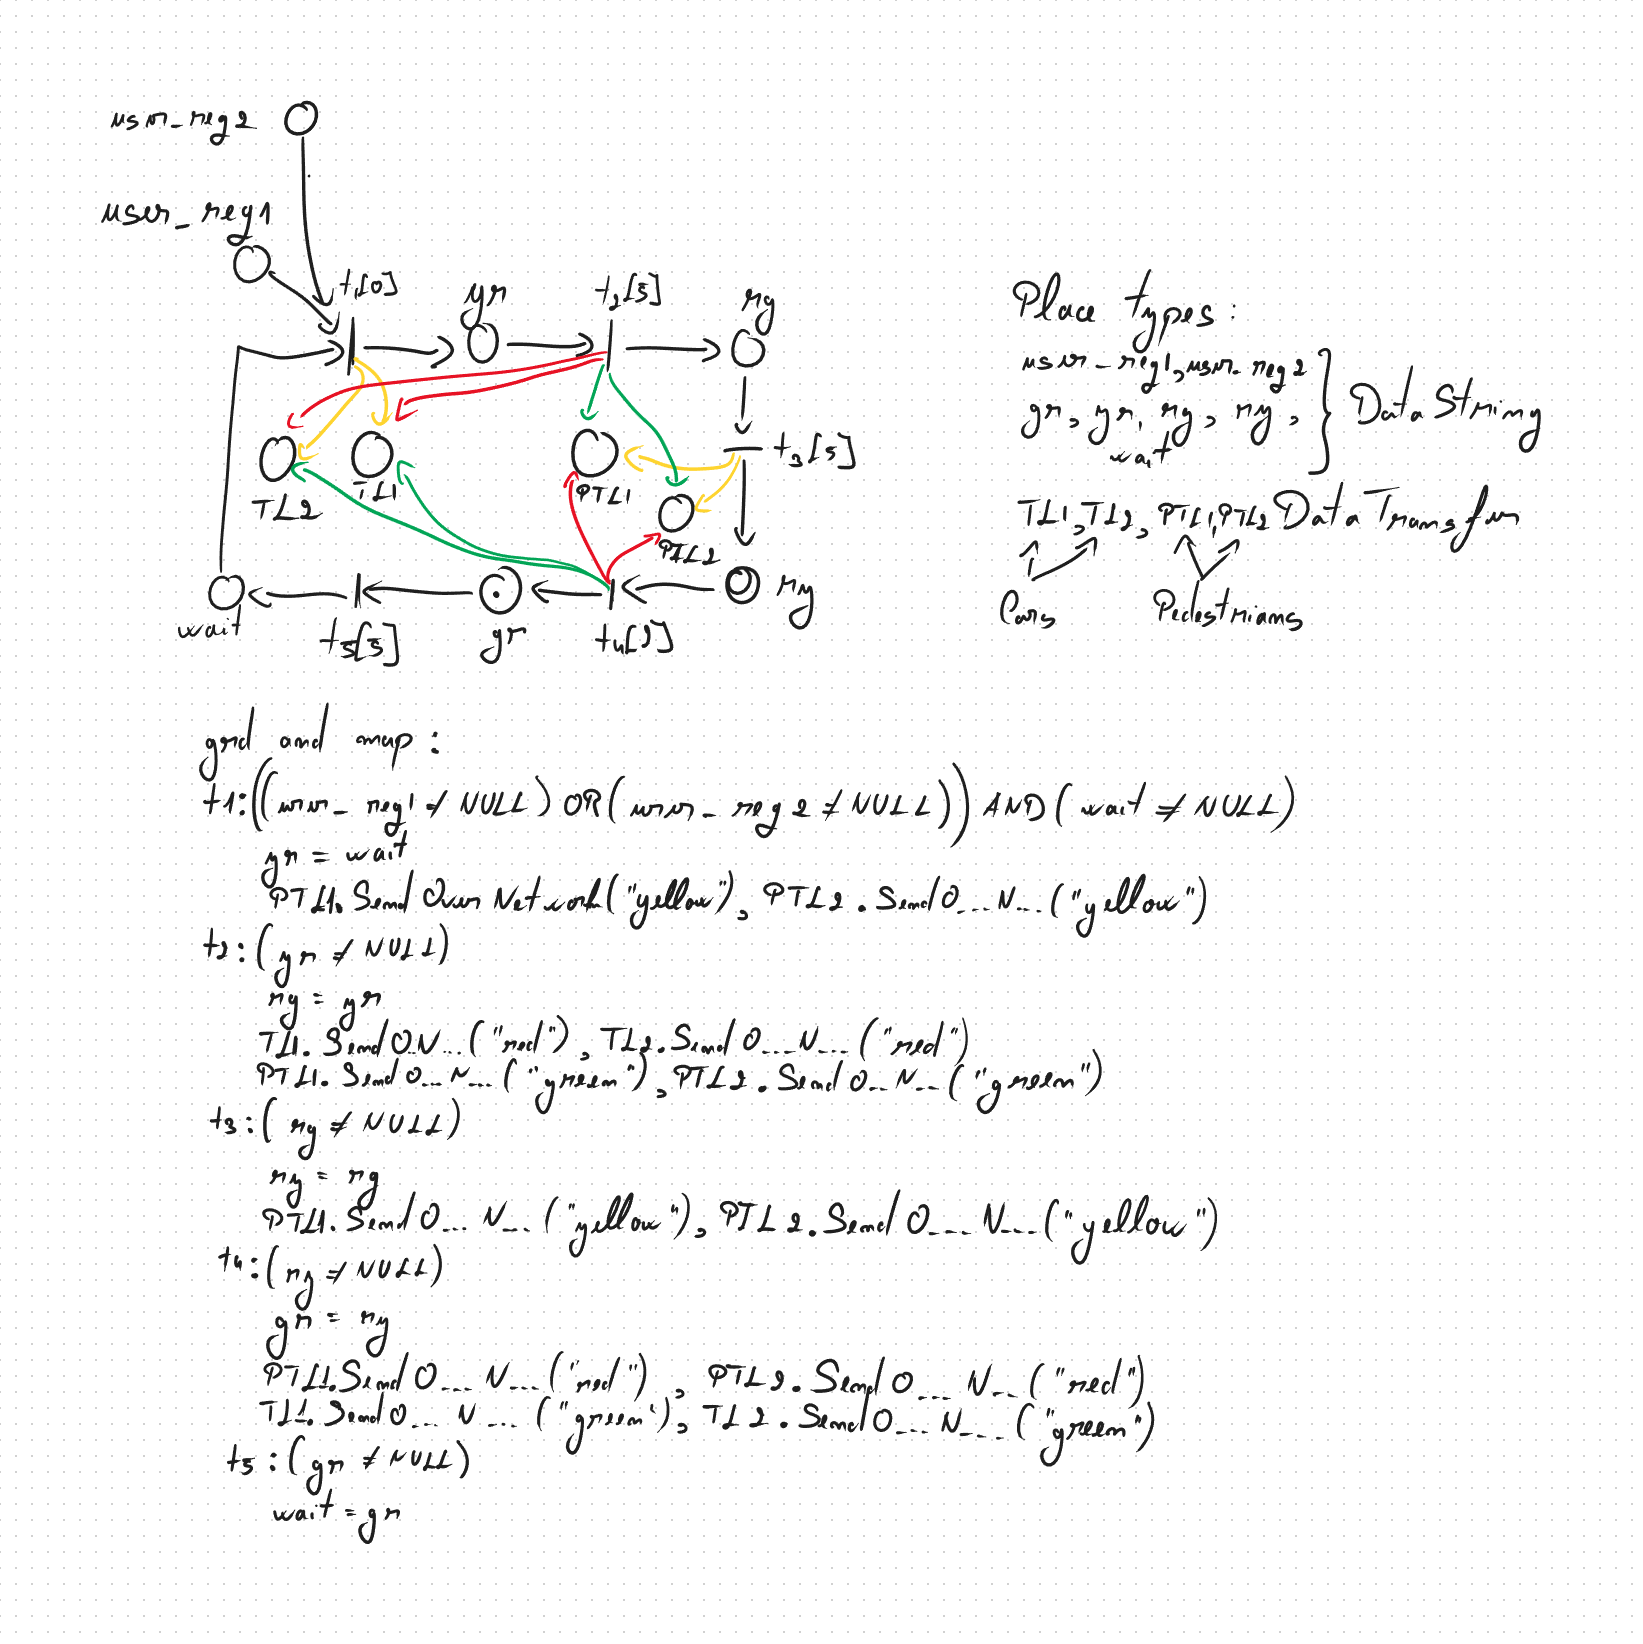 usr_reg2
user_reg1
t1[0]
yr
t2[5]
rg
t3[5]
TL2
TL1
PTL1
PTL2
ry
wait
t5[5]
gr
Place types:
usr_reg1, usr_reg2
gr, yr, rg, ry,
wait
DataString
TL1, TL2, PTL1, PTL2 DataTransfer
Cars
Pedestrians
grd and map:
t1: ((usr_reg1 ≠ NULL) OR (usr_reg2 ≠ NULL)) AND (wait ≠ NULL)
yr = wait
PTL1.SendOverNetwork("yellow"), PTL2.SendO...N...("yellow")
t2: (yr ≠ NULL)
rg = yr
TL1.SendO.N...("red"), TL2.SendO...N...("red")
PTL1.SendO...N...("green"), PTL2.SendO...N...("green")
t3: (rg ≠ NULL)
ry = rg
PTL1.SendO...N...("yellow"), PTL2.SendO...N...("yellow")
t4: (ry ≠ NULL)
gr = ry
PTL1.SendO...N...("red"), PTL2.SendO...N...("red")
TL1.SendO...N...("green"), TL2.SendO...N...("green")
t5: (gr ≠ NULL)
wait = gr